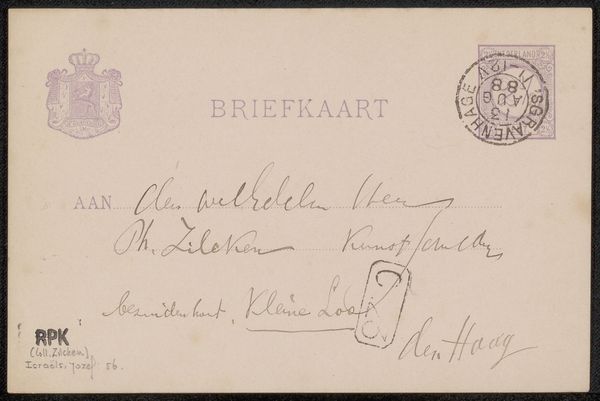 NEDERLAND
'SGRAVENHAGE
11-12V
13
AUG
88
BRIEFKAART
AAN den weledelen Heer
Ph. Zilcken Kunstschilder
bezuidenhout, Kleine Loo
den Haag
RPK
(coll. Zilcken)
Israëls, Jozef 56.